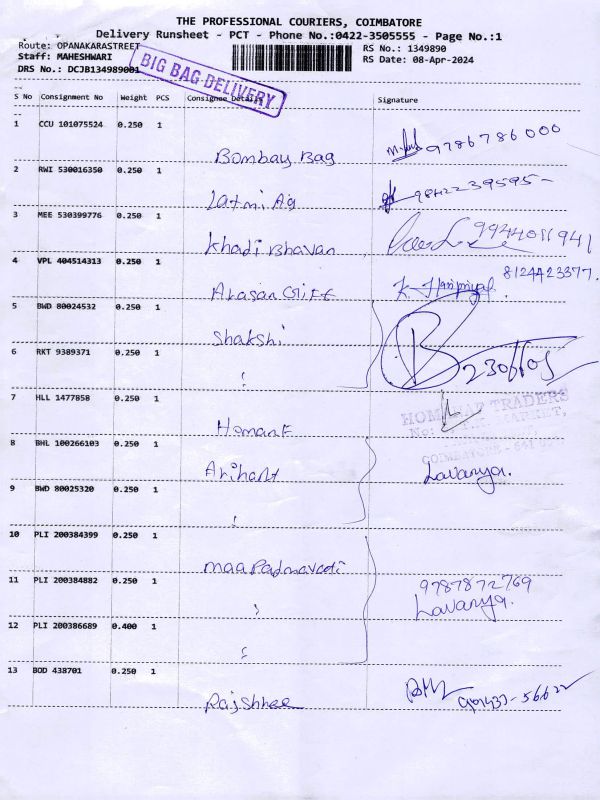 THE PROFESSIONAL COURIERS, COIMBATORE
Delivery Runsheet - PCT - Phone No.:0422-3505555 - Page No.:1
Route: OPANAKARASTREET RS No.: 1349890
Staff: MAHESHWARI RS Date: 08-Apr-2024
DRS No.: DCJB134989001
BIG BAG DELIVERY
S No Consignment No Weight PCS Consignee Details Signature
1 CCU 101075524 0.250 1
Bombay Bag 9786786000
2 RWI 530016350 0.250 1
Laxmi Ag
3 MEE 530399776 0.250 1
Khadi Bhavan 9944011941
4 VPL 404514313 0.250 1
Arasan Gift 8124423377.
5 BWD 80024532 0.250 1
Shakshi
6 RKT 9389371 0.250 1
7 HLL 1477858 0.250 1
Hemant TRADERS
8 BHL 100266103 0.250 1
Arihant Lavanya.
9 BWD 80025320 0.250 1
10 PLI 200384399 0.250 1
maa Padmavati
11 PLI 200384882 0.250 1
9787872769
Lavanya.
12 PLI 200386689 0.400 1
13 BOD 438701 0.250 1
Rajshhee